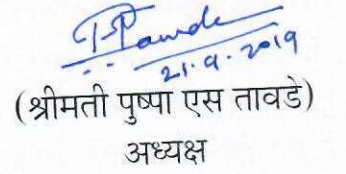 21.9.2019
(श्रीमती पुष्पा एस तावडे)
अध्यक्ष